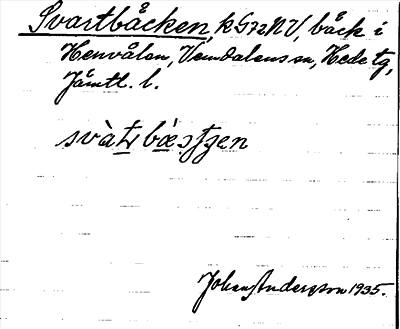 Svartbäcken, k G72NV, bäck i
Henvålen, Vemdalens sn, Hede tg,
Jämtl. l.
svàtṣ bæstɟen
Johan Anderson 1935.